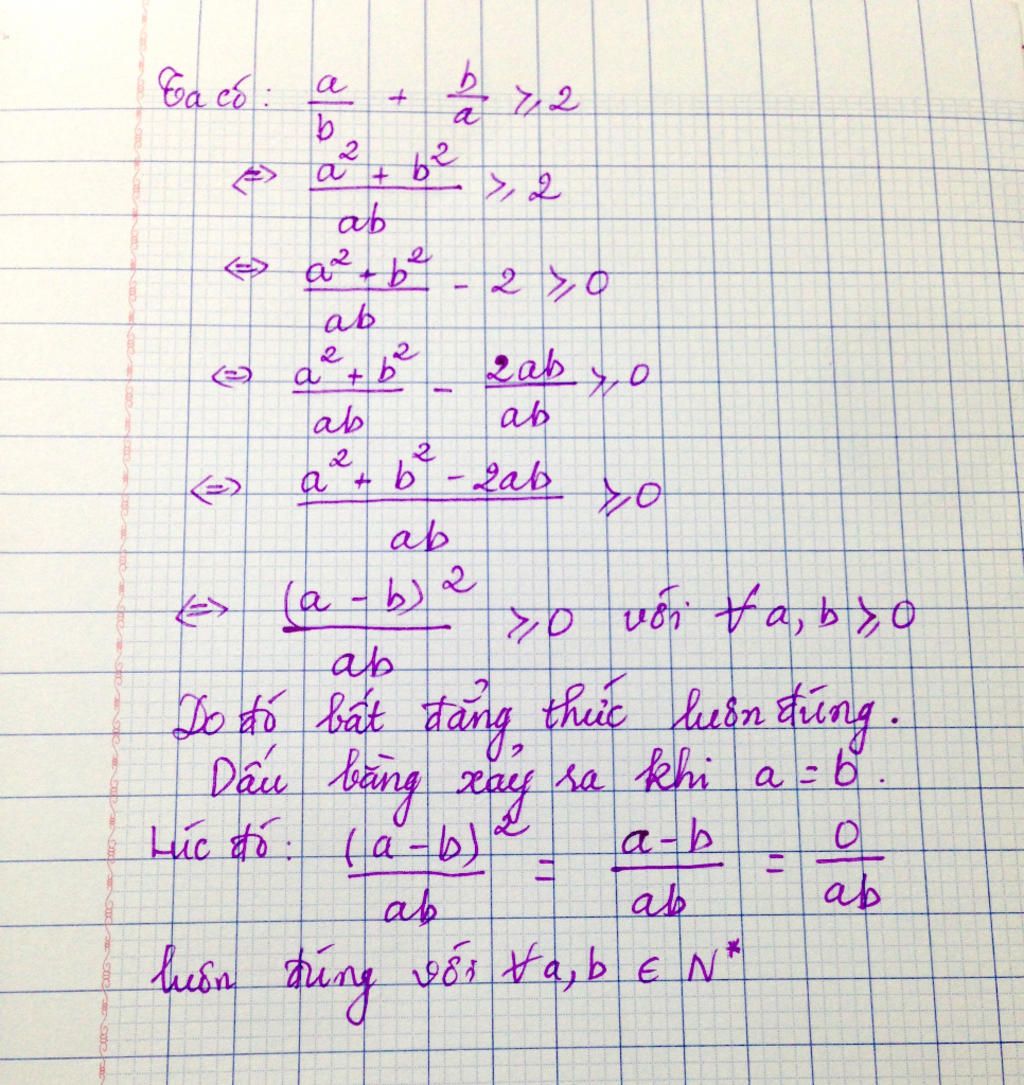 Ta có: a/b + b/a ⩾ 2
⇔ (a² + b²)/ab ⩾ 2
⇔ (a² + b²)/ab - 2 ⩾ 0
⇔ (a² + b²)/ab - 2ab/ab ⩾ 0
⇔ (a² + b² - 2ab)/ab ⩾ 0
⇔ (a - b)²/ab ⩾ 0 với ∀ a, b ⩾ 0
Do đó bất đẳng thức luôn đúng.
Dấu bằng xảy ra khi a = b.
Lúc đó: (a - b)²/ab = (a - b)/ab = 0/ab
luôn đúng với ∀ a, b ∈ N*